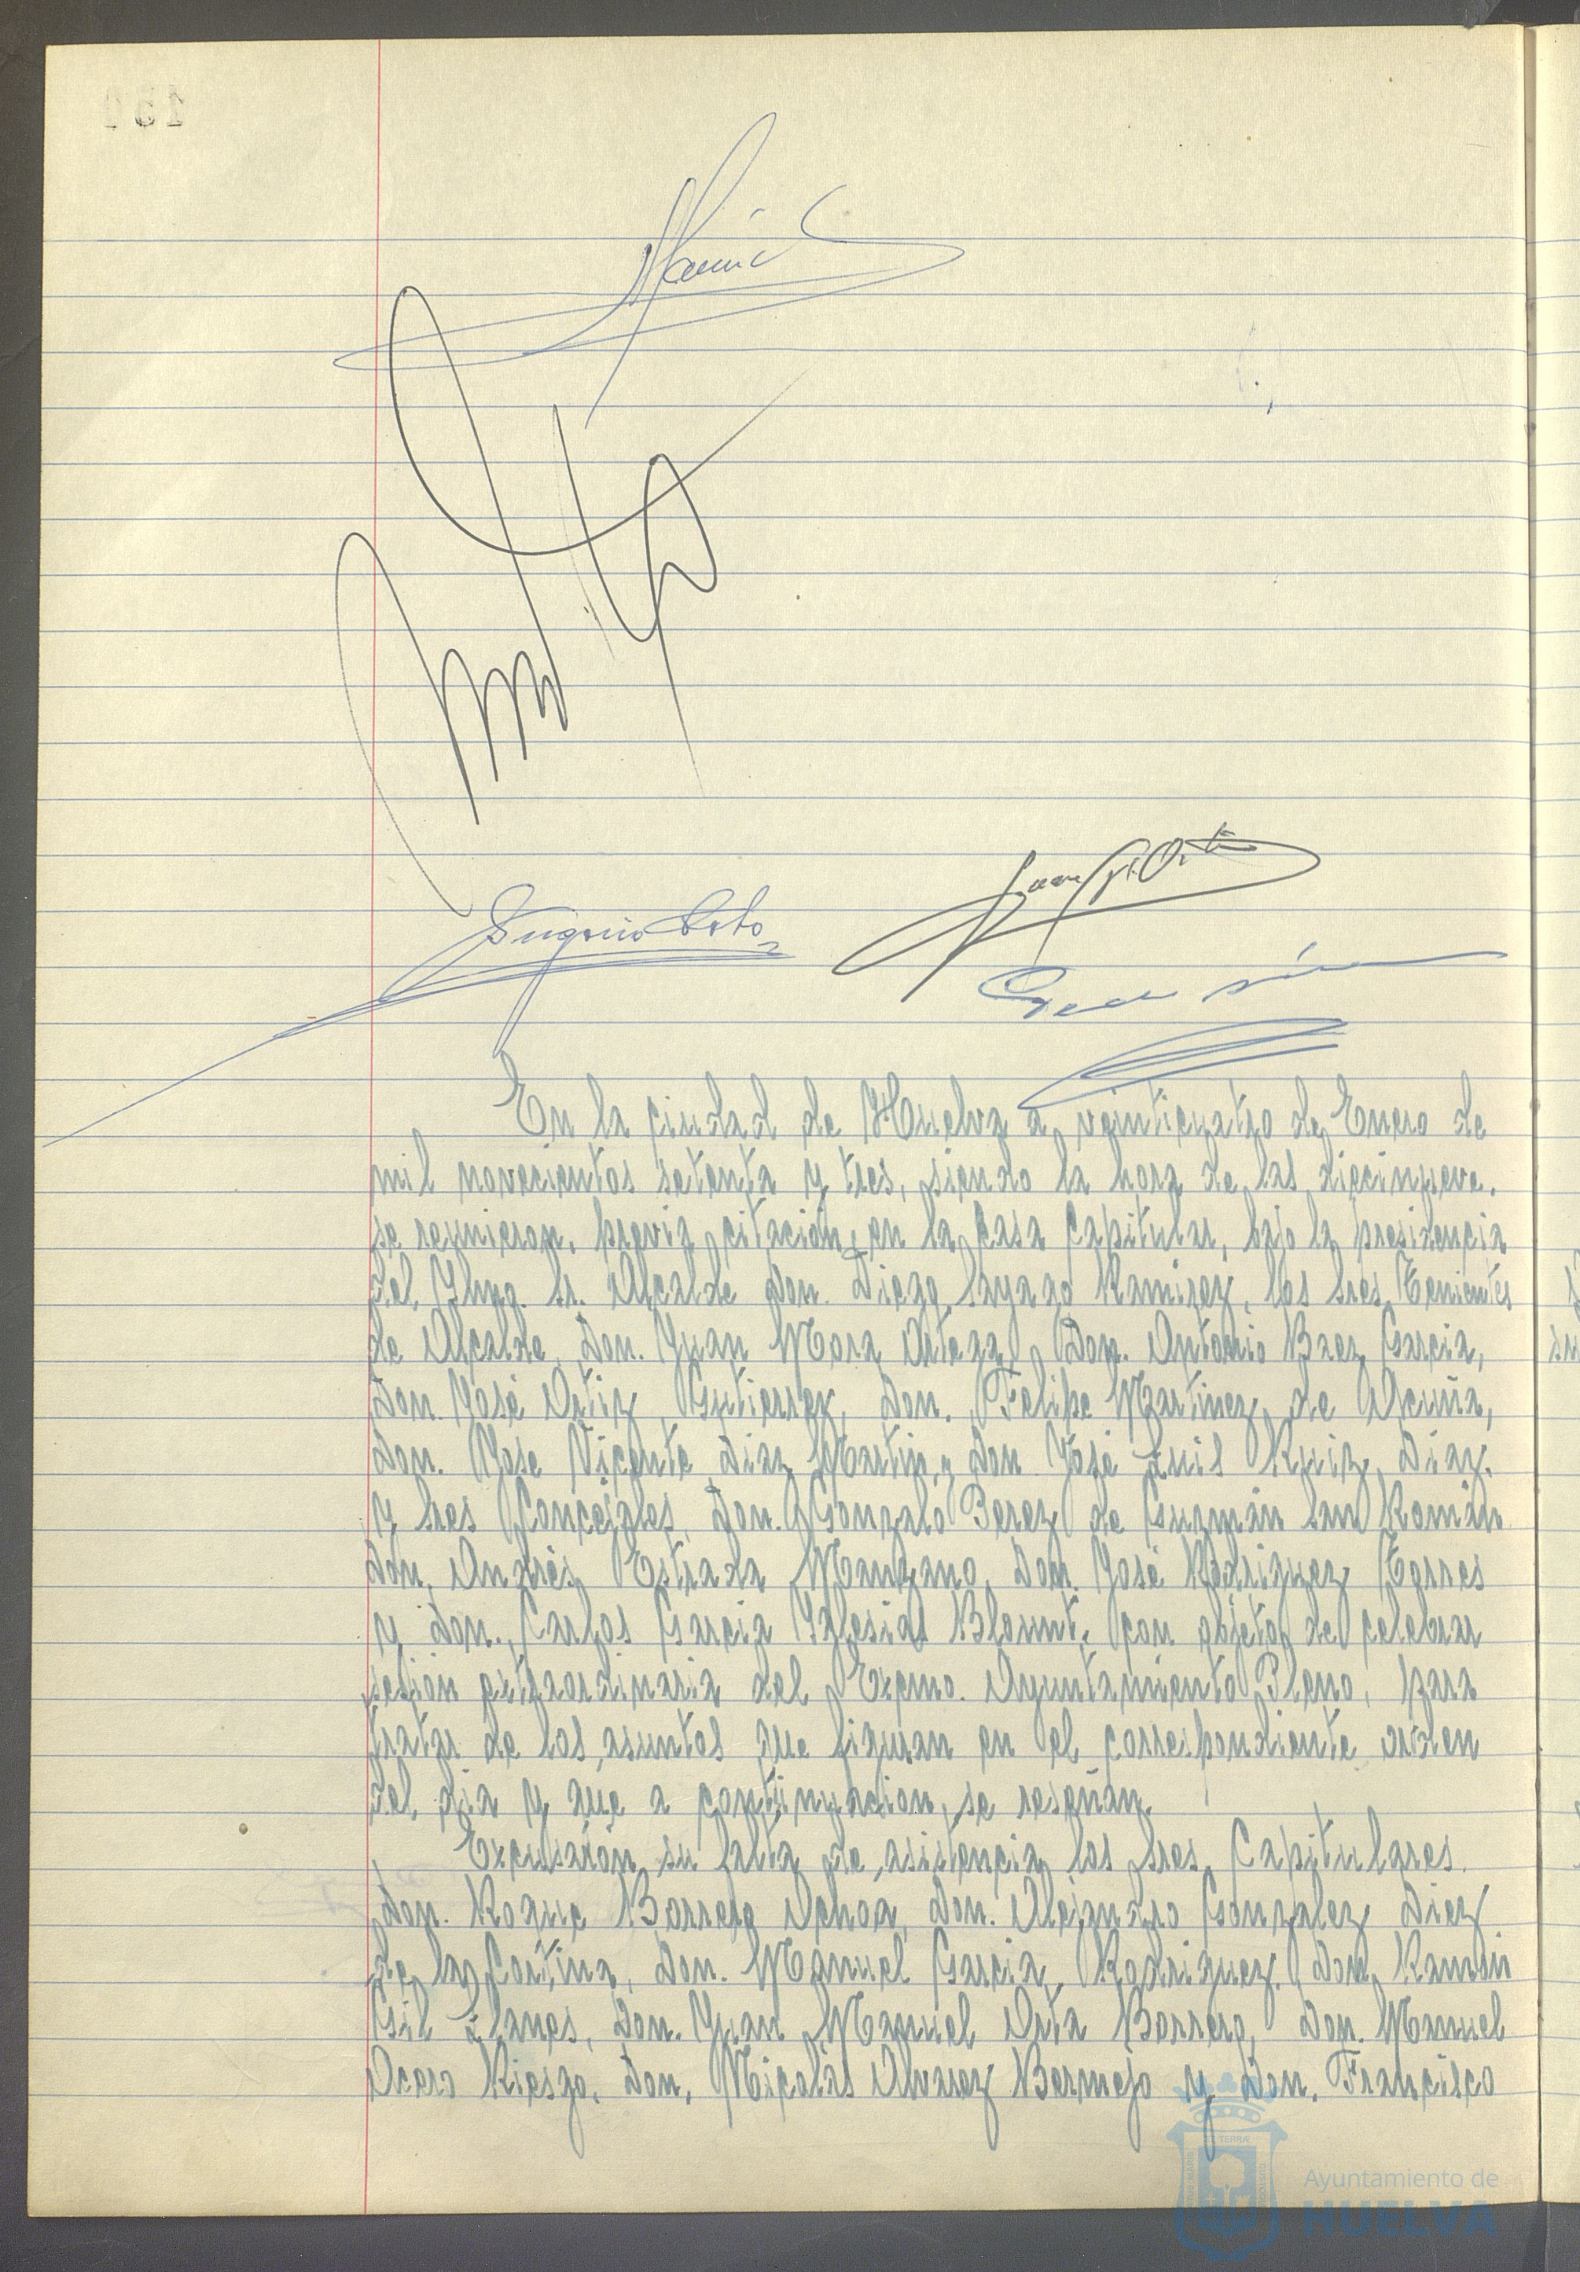 Eugenio Soto
En la ciudad de Huelva a veinticuatro de Enero de
mil novecientos setenta y tres, siendo la hora de las diecinueve,
se reunieron, previa citación, en la Casa Capitular, bajo la presidencia
del Ilmo. Sr. Alcalde Don. Diego Sayago Ramirez, los Sres. Tenientes
de Alcalde, Don. Juan Mora Ortega, Don. Antonio Baez Garcia,
Don. José Ortiz Gutierrez, Don. Felipe Martinez de Acuña,
Don. Jose Vicente Diaz Martin y Don José Luis Ruiz Diaz,
y Sres Concejales, Don. Gonzalo Perez de Guzmán San Román
Don. Andrés Estrada Manzano, Don. José Rodriguez Torres
y Don. Carlos Garcia Yglesias Blount, con objeto de celebrar
sesión extraordinaria del Excmo. Ayuntamiento Pleno, para
tratar de los asuntos que figuran en el correspondiente orden
del dia y que a continuacion, se reseñan.
Excusarón su falta de asistencia los Sres. Capitulares.
Don. Roque Borrero Ochoa, Don. Alejandro Gonzalez Diez
de la Cortina, Don. Manuel Garcia Rodriguez, Don Ramón
Gil Llanes, Don. Juan Manuel Orta Borrero, Don. Manuel
Acero Riesgo, Don. Nicolás Alvarez Bermejo y Don. Francisco
Ayuntamiento de
HUELVA